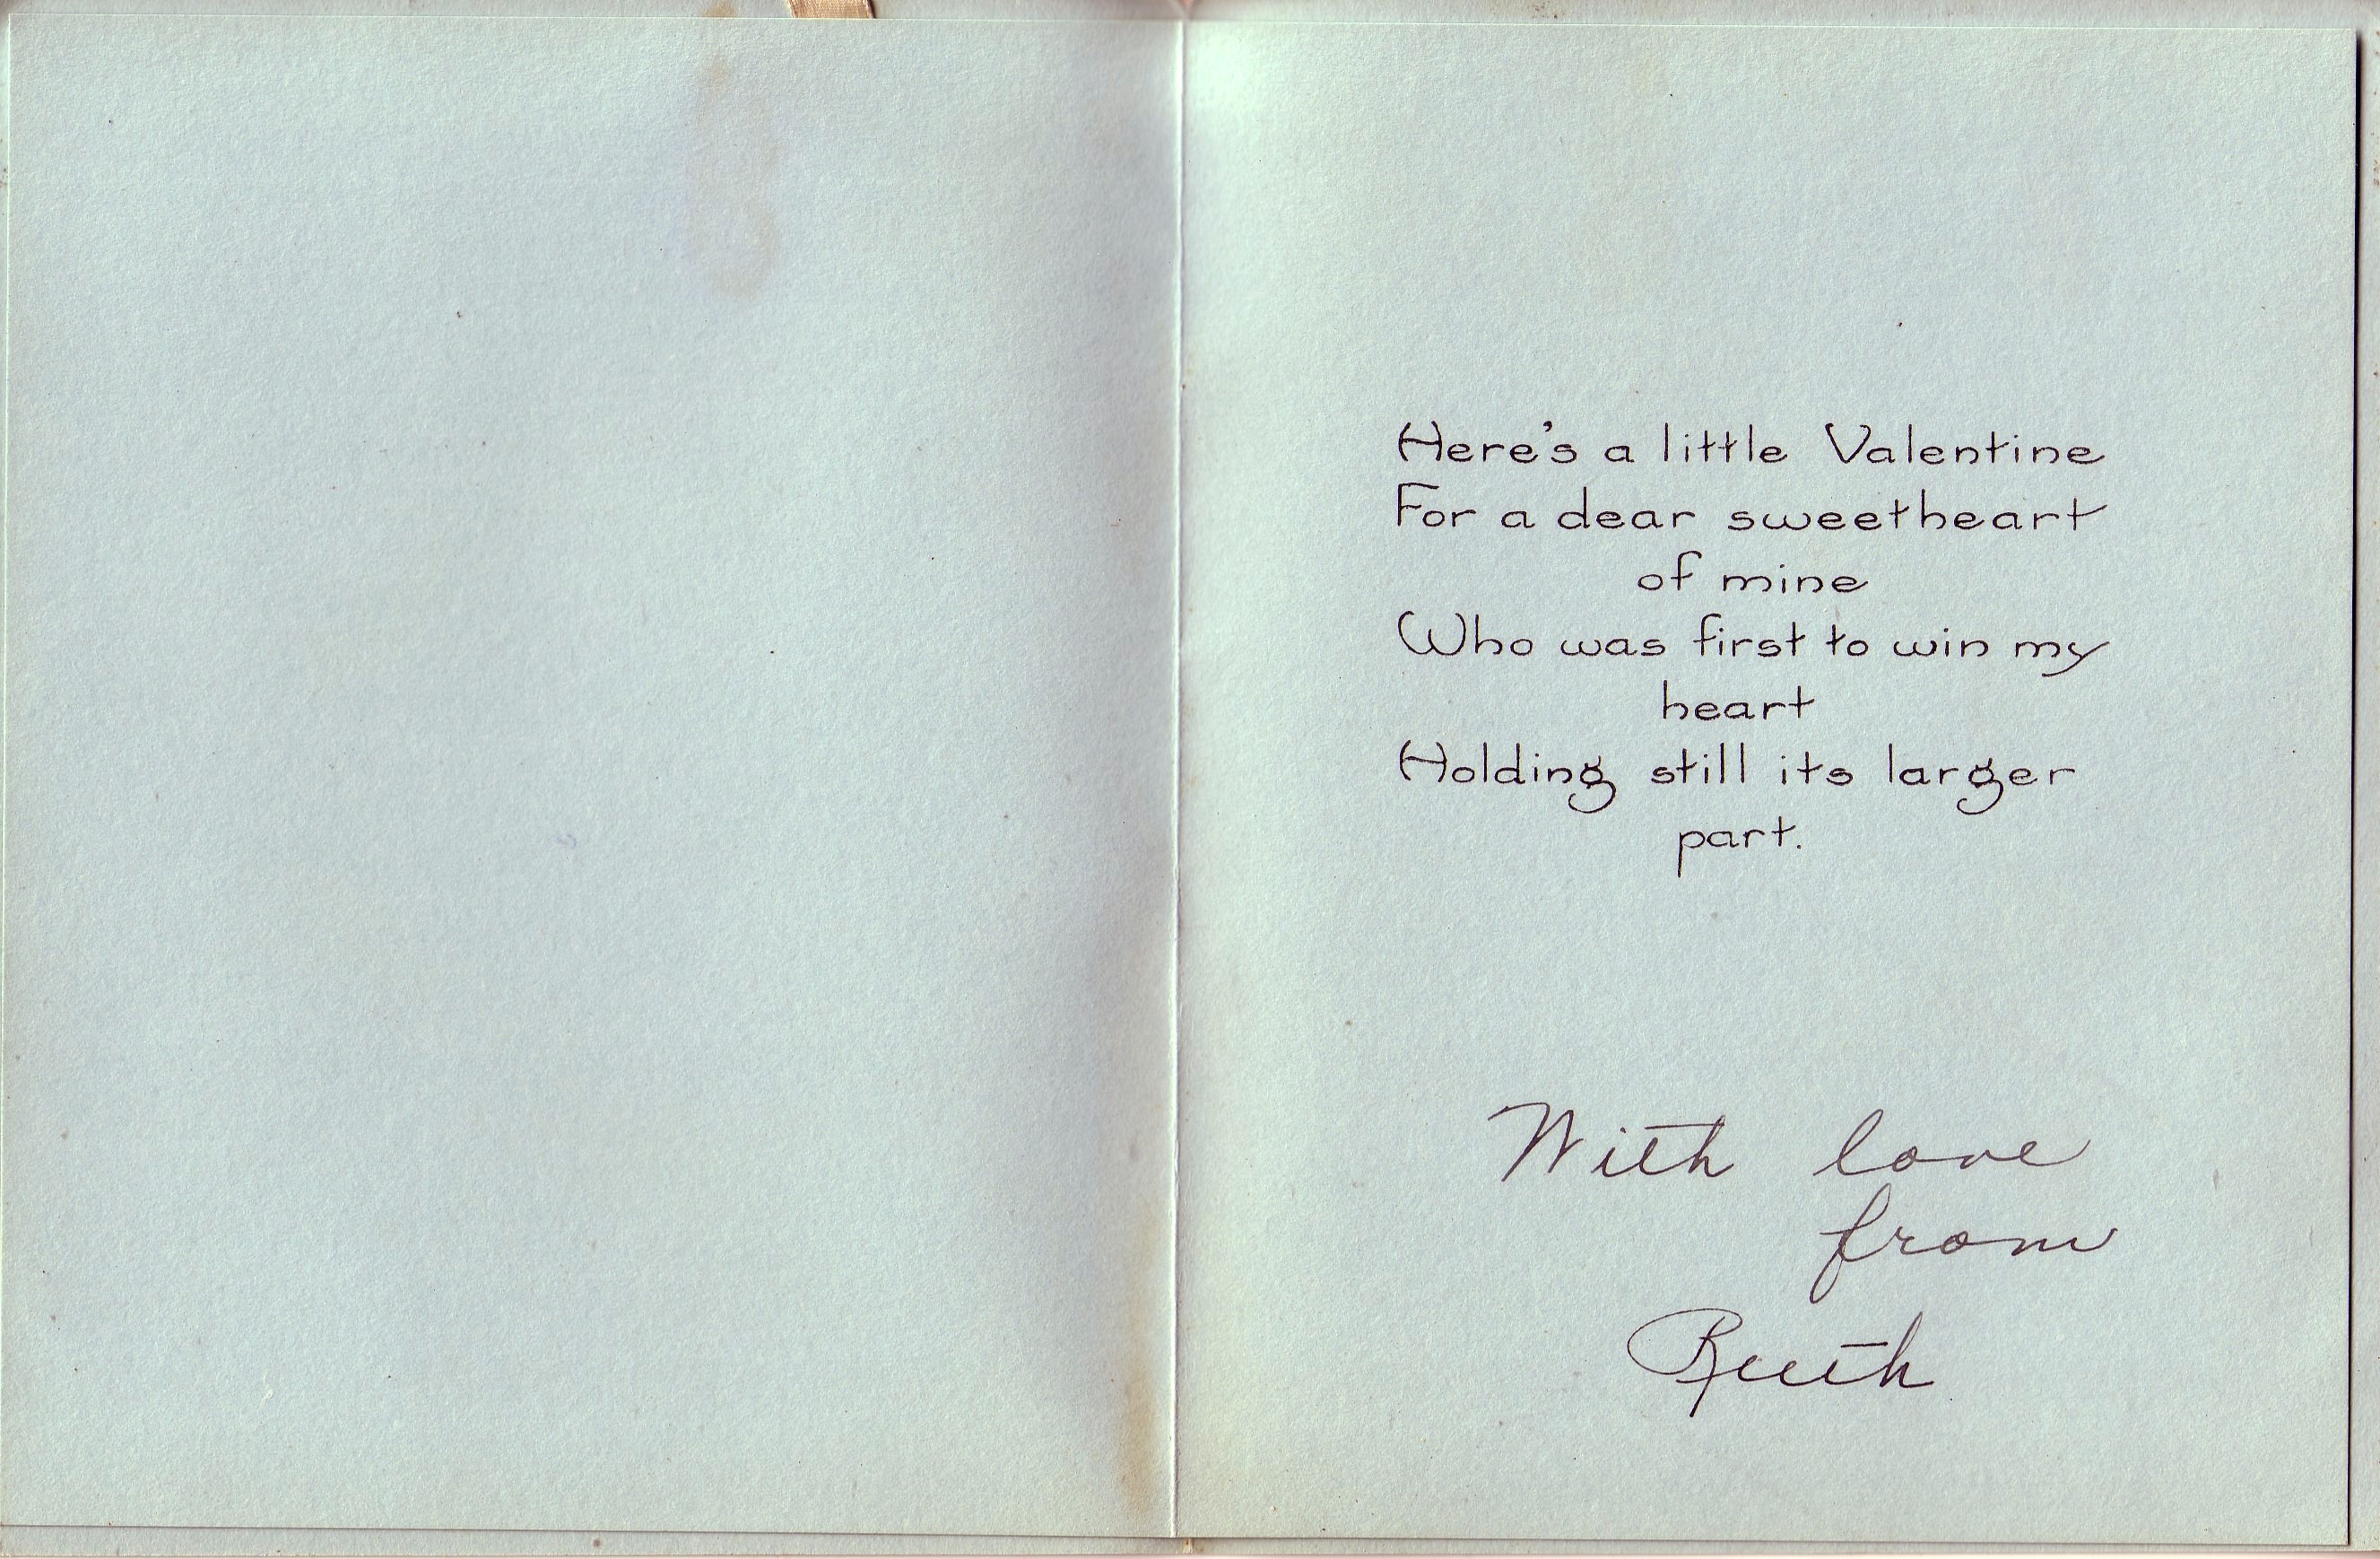 Here's a little Valentine
For a dear sweetheart
of mine
Who was first to win my
heart
Holding still its larger
part.
With love
from
Ruth